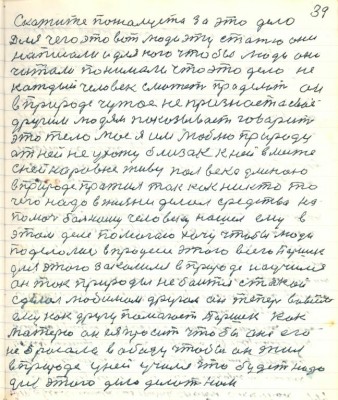 39
Скажите пожалуста за это дело
Для чего это вот люди эту статью они
написали и для кого чтобы люди они
читали понимали что это дело не
каждый человек сможет проделит он
в природе чужое не признает а свае
другим людям показывает говарит
это тело мое я им люблю природу
от ней не ухожу близак к ней вместе
с ней наровне живу пол века длиного
в природе прожил так как никто то
чего надо в жизни делал средства на
помоч болному человеку нашел ему в
этом деле помогаю хочу чтобы люди
поделали в процесе этого всего Паршек
для этого закалился в природе научился
он ток природы не боится с такой
сделал любимым другом он теперь
ему как другу помогает Паршек как
матерю он ея просит чтобы она его
не бросала в обиду чтобы он жил
в природе у ней учился это будет надо
для этого дело делат нам